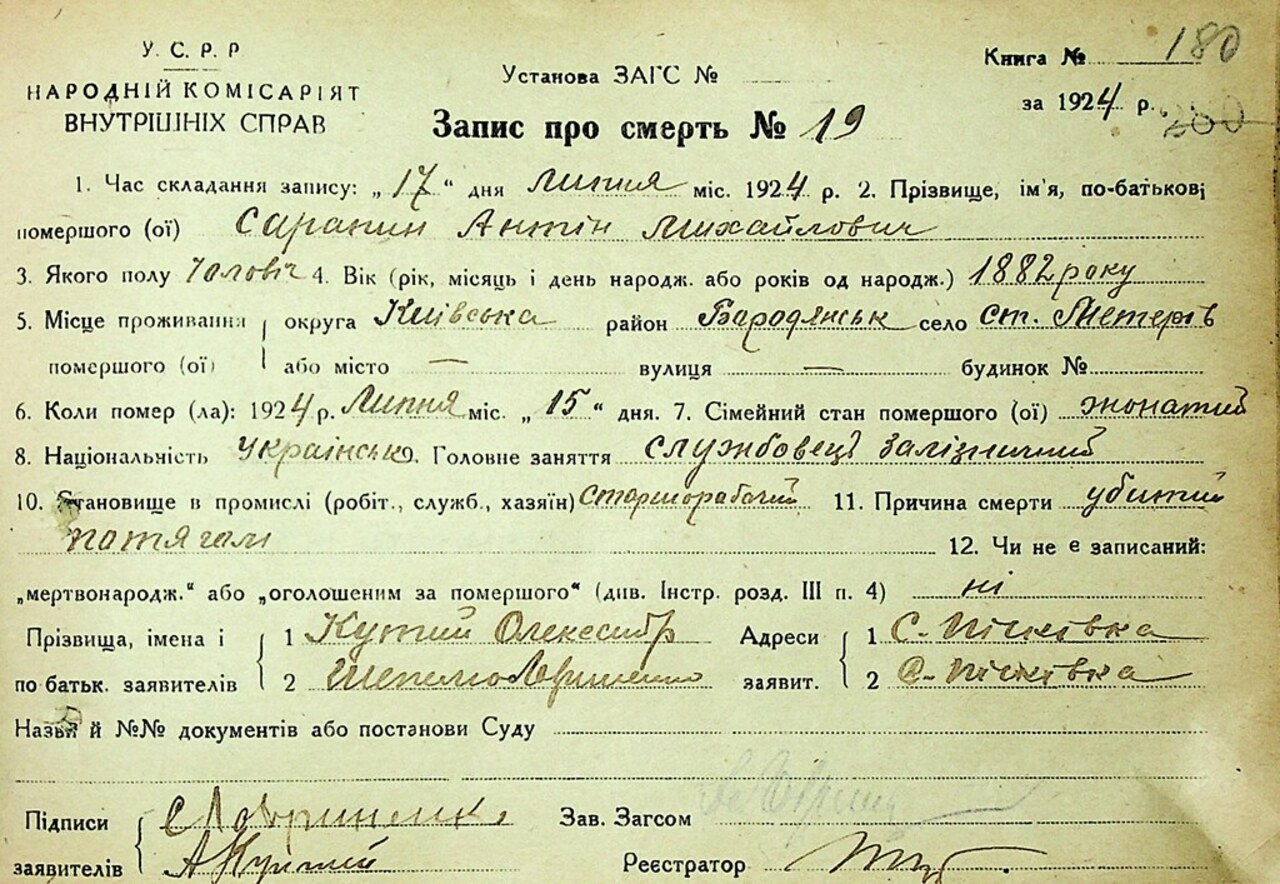 У. С. Р. Р
НАРОДНІЙ КОМІСАРІЯТ
ВНУТРІШНІХ СПРАВ
Установа ЗАГС №
Книга № 180
за 1924 р.
200
Запис про смерть № 19
1. Час складання запису: „17" дня Липня міс. 1924 р. 2. Прізвище, ім'я, по-батькові
помершого (ої) Сарапин Антін Михайлович
3. Якого полу Чоловіч 4. Вік (рік, місяць і день народж. або років од народж.) 1882 року
5. Місце проживання округа Київська район Бародянськ село ст. Тетерів
помершого (ої) або місто — вулиця — будинок №
6. Коли помер (ла): 1924 р. Липня міс. „15" дня. 7. Сімейний стан помершого (ої) жонатий
8. Національність Українськ 9. Головне заняття службовець залізничний
10. Становище в промислі (робіт., служб., хазяїн) старшорабочий 11. Причина смерти убитий
потягом 12. Чи не є записаний:
„мертвонародж." або „оголошеним за помершого" (див. Інстр. розд. III п. 4) ні
Прізвища, імена і 1 Кутий Олександр Адреси 1 С. Пісківка
по батьк. заявителів 2 Лавриненко заявит. 2 С. Пісківка
Назви й №№ документів або постанови Суду
Підписи С Лавриненко Зав. Загсом
заявителів А Кутий Реєстратор